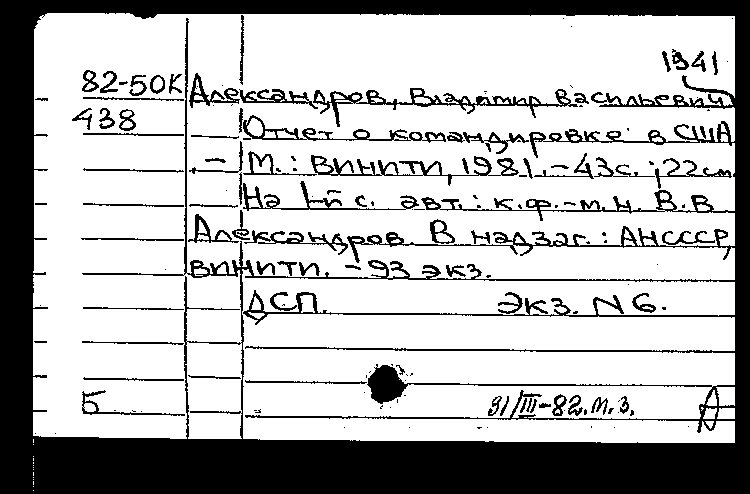 1941
82-50К Александров, Владимир Васильевич.
438 Отчет о командировке в США
.– М.: ВИНИТИ, 1981.–43с.; 22см.
На 1-й с. авт.: к.ф.-м.н. В.В.
Александров. В надзаг.: АНСССР,
ВИНИТИ. –93 экз.
ДСП. Экз. N 6.
5 31/III-82.м.з. А